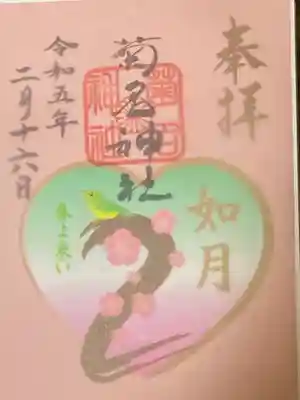 奉拝
如月
菊名神社
令和五年
二月十六日
春よ来い